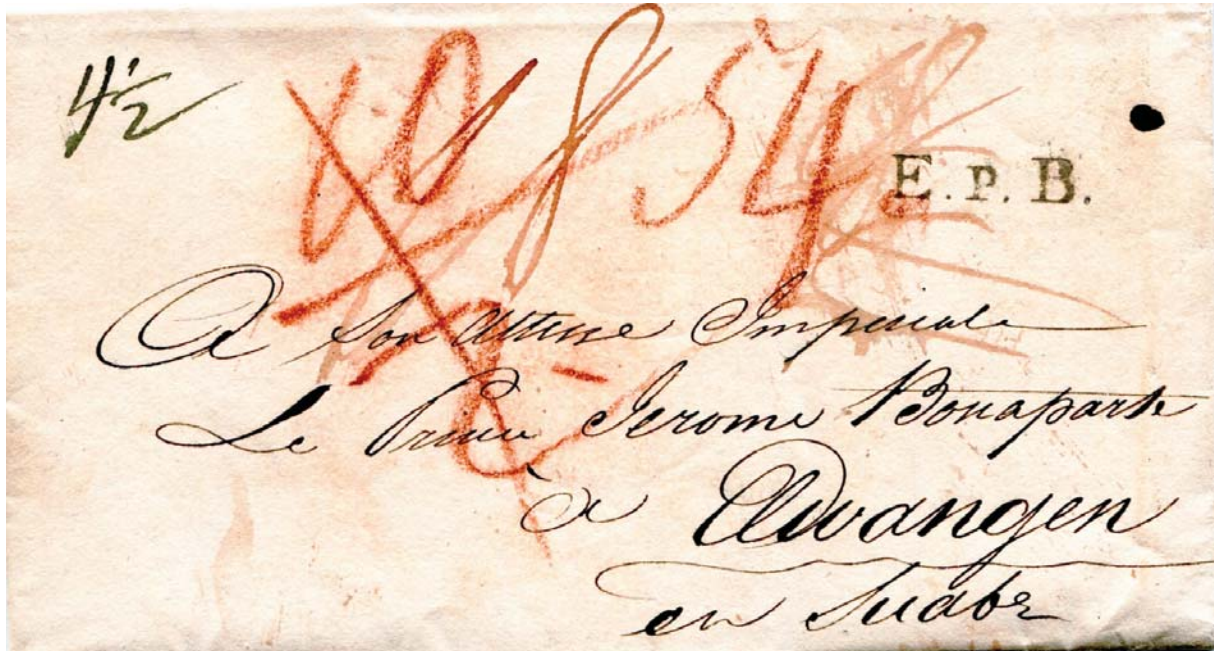 4 1/2
54
E. P. B.
A Son Altesse Imperiale
Le Prince Jerome Bonaparte
à Elwangen
en Suabe